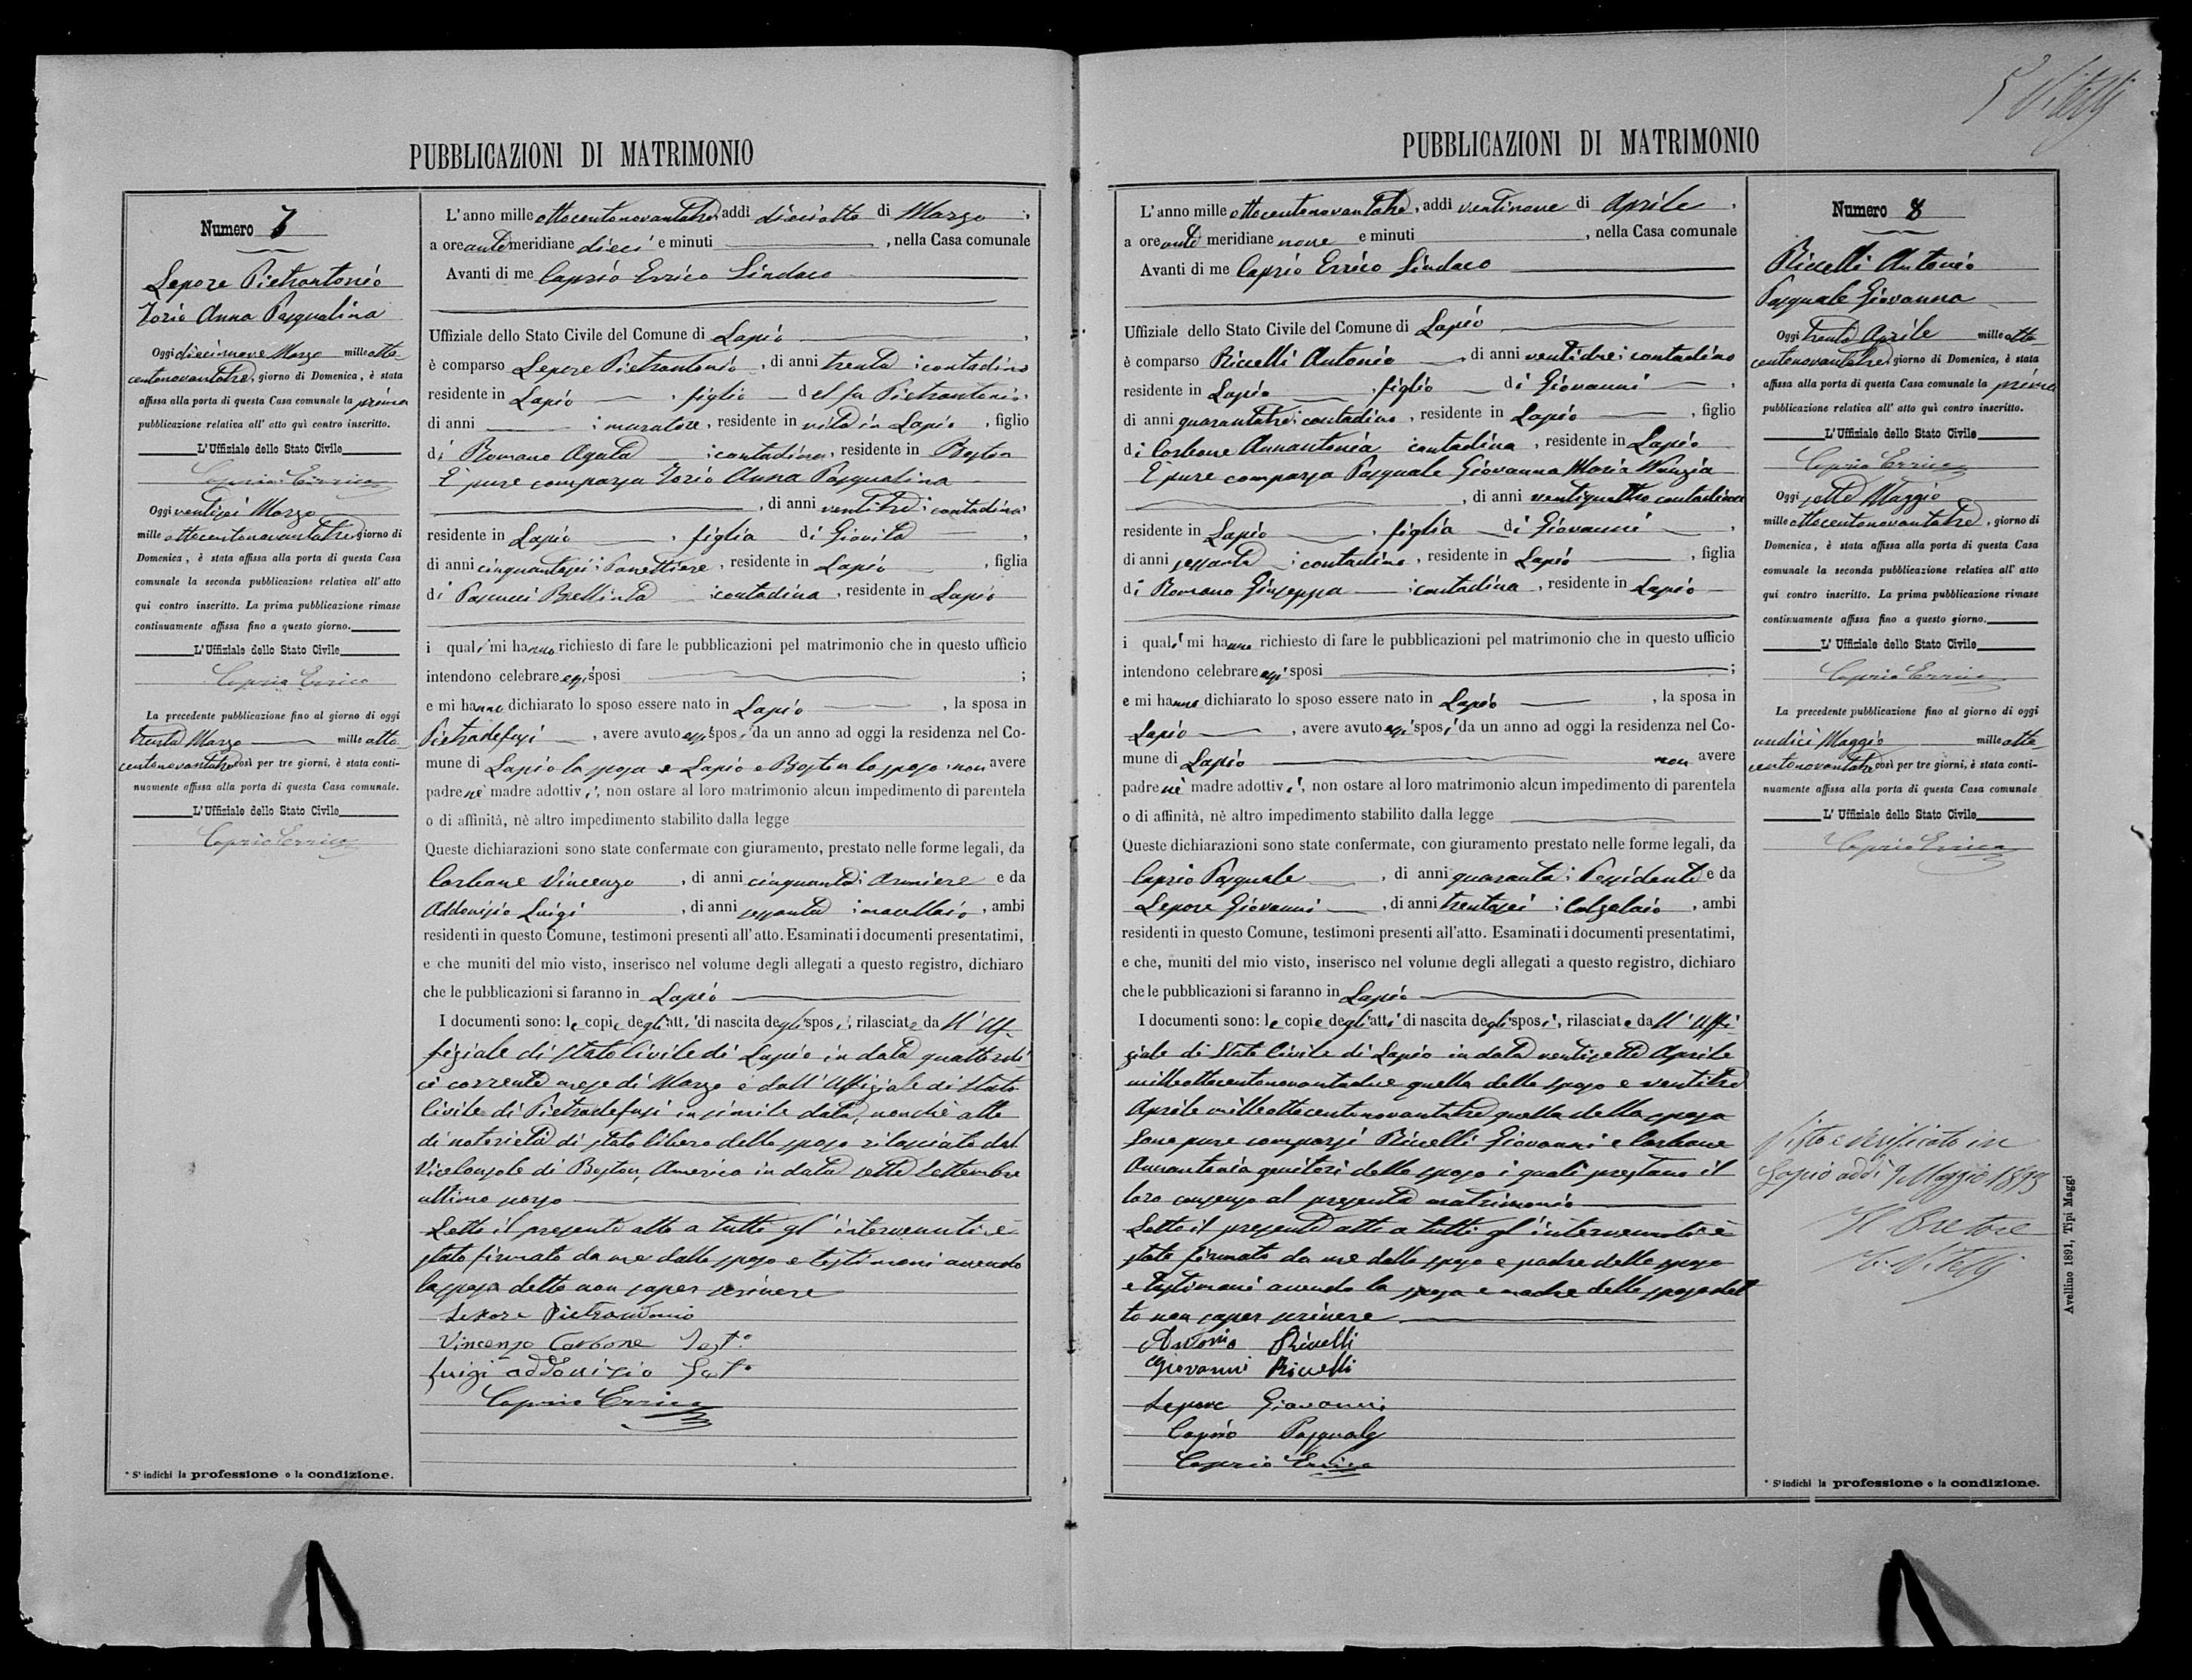 PUBBLICAZIONI DI MATRIMONIO
Numero 7
Lepore Pietrantonio
Iorio Anna Pasqualina
Oggi diecinove Marzo mille otto
centonovantatre, giorno di Domenica, è stata
affissa alla porta di questa Casa comunale la prima
pubblicazione relativa all' atto quì contro inscritto.
L'Uffiziale dello Stato Civile
Caprio Errico
Oggi ventisei Marzo
mille ottocentonovantatre giorno di
Domenica, è stata affissa alla porta di questa Casa
comunale la seconda pubblicazione relativa all' atto
qui contro inscritto. La prima pubblicazione rimase
continuamente affissa fino a questo giorno.
L'Uffiziale dello Stato Civile
Caprio Errico
La precedente pubblicazione fino al giorno di oggi
trenta Marzo mille otto
centonovantatre così per tre giorni, è stata conti-
nuamente affissa alla porta di questa Casa comunale.
L'Uffiziale dello Stato Civile
Caprio Errico
* S' indichi la professione o la condizione.
L'anno mille ottocentonovantatre, addì dieciotto di Marzo,
a ore antimeridiane dieci e minuti , nella Casa comunale
Avanti di me Caprio Errico Sindaco
Uffiziale dello Stato Civile del Comune di Lapio ,
è comparso Lepore Pietrantonio , di anni trenta : contadino
residente in Lapio , figlio del fu Pietrantonio,
di anni : muratore, residente in vita in Lapio , figlio
di Romano Agata : contadina, residente in Boston
È pure comparsa Iorio Anna Pasqualina
, di anni ventitre : contadina
residente in Lapio , figlia di Giovita ,
di anni cinquantasei : Panettiere, residente in Lapio , figlia
di Pascucci Bellinta : contadina , residente in Lapio
i quali mi hanno richiesto di fare le pubblicazioni pel matrimonio che in questo ufficio
intendono celebrare essi sposi ;
e mi hanno dichiarato lo sposo essere nato in Lapio , la sposa in
Pietradefusi , avere avuto essi sposi da un anno ad oggi la residenza nel Co-
mune di Lapio la sposa e Lapio e Boston lo sposo non avere
padre nè madre adottivi, non ostare al loro matrimonio alcun impedimento di parentela
o di affinità, nè altro impedimento stabilito dalla legge
Queste dichiarazioni sono state confermate con giuramento, prestato nelle forme legali, da
Carbone Vincenzo , di anni cinquanta : Armiere e da
Addonisio Luigi , di anni sessanta : macellaio , ambi
residenti in questo Comune, testimoni presenti all'atto. Esaminati i documenti presentatimi,
e che muniti del mio visto, inserisco nel volume degli allegati a questo registro, dichiaro
che le pubblicazioni si faranno in Lapio
I documenti sono: le copie degli atti di nascita degli sposi, rilasciate da ll' Uf-
fiziale di Stato Civile di Lapio in data quattordi
ci corrente mese di Marzo e dall' Uffiziale di Stato
Civile di Pietradefusi in simile data, nonchè atto
di notorietà di stato libero dello sposo rilasciato dal
Viceconsole di Boston, America in data sette Settembre
ultimo scorso
Letto il presente atto a tutti gl' intervenuti è
stato firmato da me dallo sposo e testimoni avendo
la sposa detto non saper scrivere
Lepore Pietrantonio
Vincenzo Carbone Test.º
Luigi addonisio Test.º
Caprio Errico
PUBBLICAZIONI DI MATRIMONIO
L'anno mille ottocentonovantatre, addì ventinove di Aprile,
a ore anti meridiane nove e minuti , nella Casa comunale
Avanti di me Caprio Errico Sindaco
Uffiziale dello Stato Civile del Comune di Lapio
è comparso Riccelli Antonio , di anni ventidue : contadino
residente in Lapio , figlio di Giovanni ,
di anni quarantatre : contadino , residente in Lapio , figlio
di Carbone Annantonia contadina , residente in Lapio
È pure comparsa Pasquale Giovanna Maria Nunzia
, di anni ventiquattro contadina
residente in Lapio , figlia di Giovanni ,
di anni sessanta : contadino , residente in Lapio , figlia
di Romano Giuseppa : contadina , residente in Lapio
i quali mi hanno richiesto di fare le pubblicazioni pel matrimonio che in questo ufficio
intendono celebrare essi sposi ;
e mi hanno dichiarato lo sposo essere nato in Lapio , la sposa in
Lapio , avere avuto essi sposi da un anno ad oggi la residenza nel Co-
mune di Lapio non avere
padre nè madre adottivi, non ostare al loro matrimonio alcun impedimento di parentela
o di affinità, nè altro impedimento stabilito dalla legge
Queste dichiarazioni sono state confermate, con giuramento prestato nelle forme legali, da
Caprio Pasquale , di anni quaranta : Possidente e da
Lepore Giovanni , di anni trentasei : Calzolaio , ambi
residenti in questo Comune, testimoni presenti all'atto. Esaminati i documenti presentatimi,
e che, muniti del mio visto, inserisco nel volume degli allegati a questo registro, dichiaro
che le pubblicazioni si faranno in Lapio
I documenti sono: le copie degli atti di nascita degli sposi, rilasciate da ll' Uffi-
ziale di Stato Civile di Lapio in data ventisette Aprile
milleottocentonovantadue quella dello sposo e ventitre
Aprile milleottocentonovantatre quella della sposa
Sono pure comparsi Riccelli Giovanni e Carbone
Annantonia genitori dello sposo i quali prestano il
loro consenso al presente matrimonio
Letto il presente atto a tutti gl' intervenuti è
stato firmato da me dallo sposo e padre dello sposo
e testimoni avendo la sposa e madre dello sposo det
to non saper scrivere
Antonio Riccelli
Giovanni Riccelli
Lepore Giovanni
Caprio Pasquale
Caprio Errico
Numero 8
Riccelli Antonio
Pasquale Giovanna
Oggi trenta Aprile mille otto
centonovantatre, giorno di Domenica, è stata
affissa alla porta di questa Casa comunale la prima
pubblicazione relativa all' atto quì contro inscritto.
L'Uffiziale dello Stato Civile
Caprio Errico
Oggi sette Maggio
mille ottocentonovantatre, giorno di
Domenica, è stata affissa alla porta di questa Casa
comunale la seconda pubblicazione relativa all' atto
qui contro inscritto. La prima pubblicazione rimase
continuamente affissa fino a questo giorno.
L' Uffiziale dello Stato Civile
Caprio Errico
La precedente pubblicazione fino al giorno di oggi
undici Maggio mille otto
centonovantatre così per tre giorni, è stata conti-
nuamente affissa alla porta di questa Casa comunale
L' Uffiziale dello Stato Civile
Caprio Errico
Visto e verificato in
Lapio addì 9 Maggio 1893
Il Pretore
* S' indichi la professione o la condizione.
Avellino 1891, Tipi Maggi